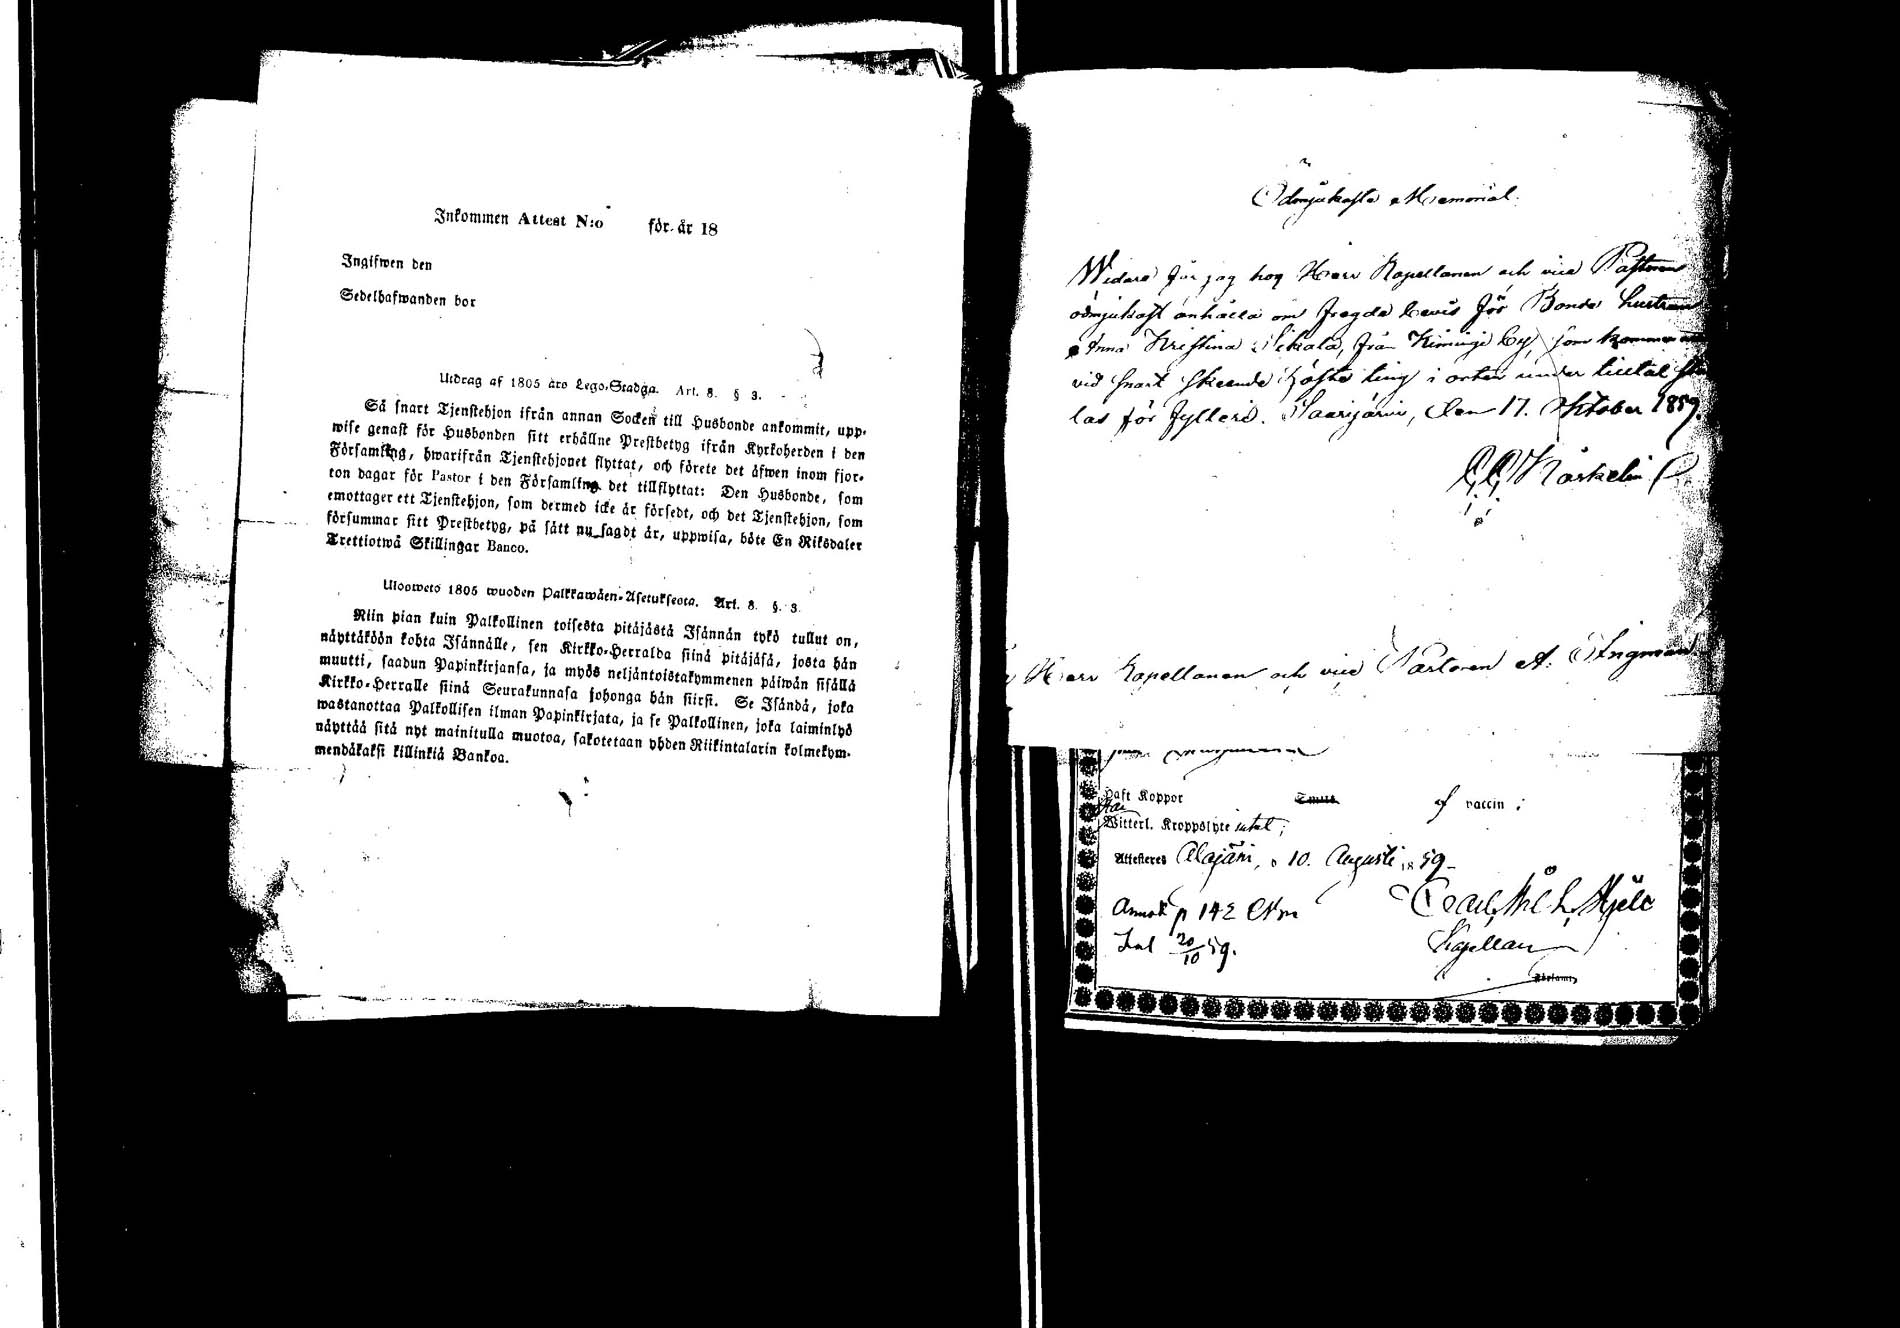 Inkommen Attest N:o för år 18
Ingifwen den
Sedelhafwanden bor
Utdrag af 1805 års Lego-Stadga. Art. 8. § 3.
Så snart Tjenstehjon ifrån annan Socken till Husbonde ankommit, upp-
wise genast för Husbonden sitt erhållne Prestbetyg ifrån Kyrkoherden i den
Församling, hwarifrån Tjenstehjonet flyttat, och förete det äfwen inom fjor-
ton dagar för Pastor i den Församling det tillflyttat: Den Husbonde, som
emottager ett Tjenstehjon, som dermed icke är försedt, och det Tjenstehjon, som
försummar sitt Prestbetyg, på sätt nu sagdt är, uppwisa, böte En Riksdaler
Trettiotwå Skillingar Banco.
Ulosweto 1805 wuoden Palkkawäen-Asetuksesta. Art. 8. §. 3.
Niin pian kuin Palkollinen toisesta pitäjästä Isännän tykö tullut on,
näyttäköön kohta Isännälle, sen Kirkko-Herralda siinä pitäjäsä, josta hän
muutti, saadun Papinkirjansa, ja myös neljäntoistakymmenen päiwän sisällä
Kirkko-Herralle siinä Seurakunnasa johonga hän siirsi. Se Isändä, joka
wastanottaa Palkollisen ilman Papinkirjata, ja se Palkollinen, joka laiminlyö
näyttää sitä nyt mainitulla muotoa, sakotetaan yhden Riikintalarin kolmekym-
mendäkaksi killinkiä Bankoa.
Ödmjukaste Memorial.
Widare får jag hog Herr Kapellanen och vice Pastoren
ödmjukast anhålla om fregde bevis för Bonde hustrun
Anna Kristina, från Kimingi by, som kommer
vid snart skeende höste ting i orten under tilltal
las för fylleri. Saarijärvi, den 17. Oktober 1859.
Kaskelin
Herr Kapellanen och vice Pastoren A. Ingman
Haft Koppor af vaccin;
Witterl. Kroppslyte intet;
Attesteras Alajärvi, d 10. Augusti 1859
Carl Wilh. Hjelt
Kapellan
Anmält p 142
Inl 20/10 59.